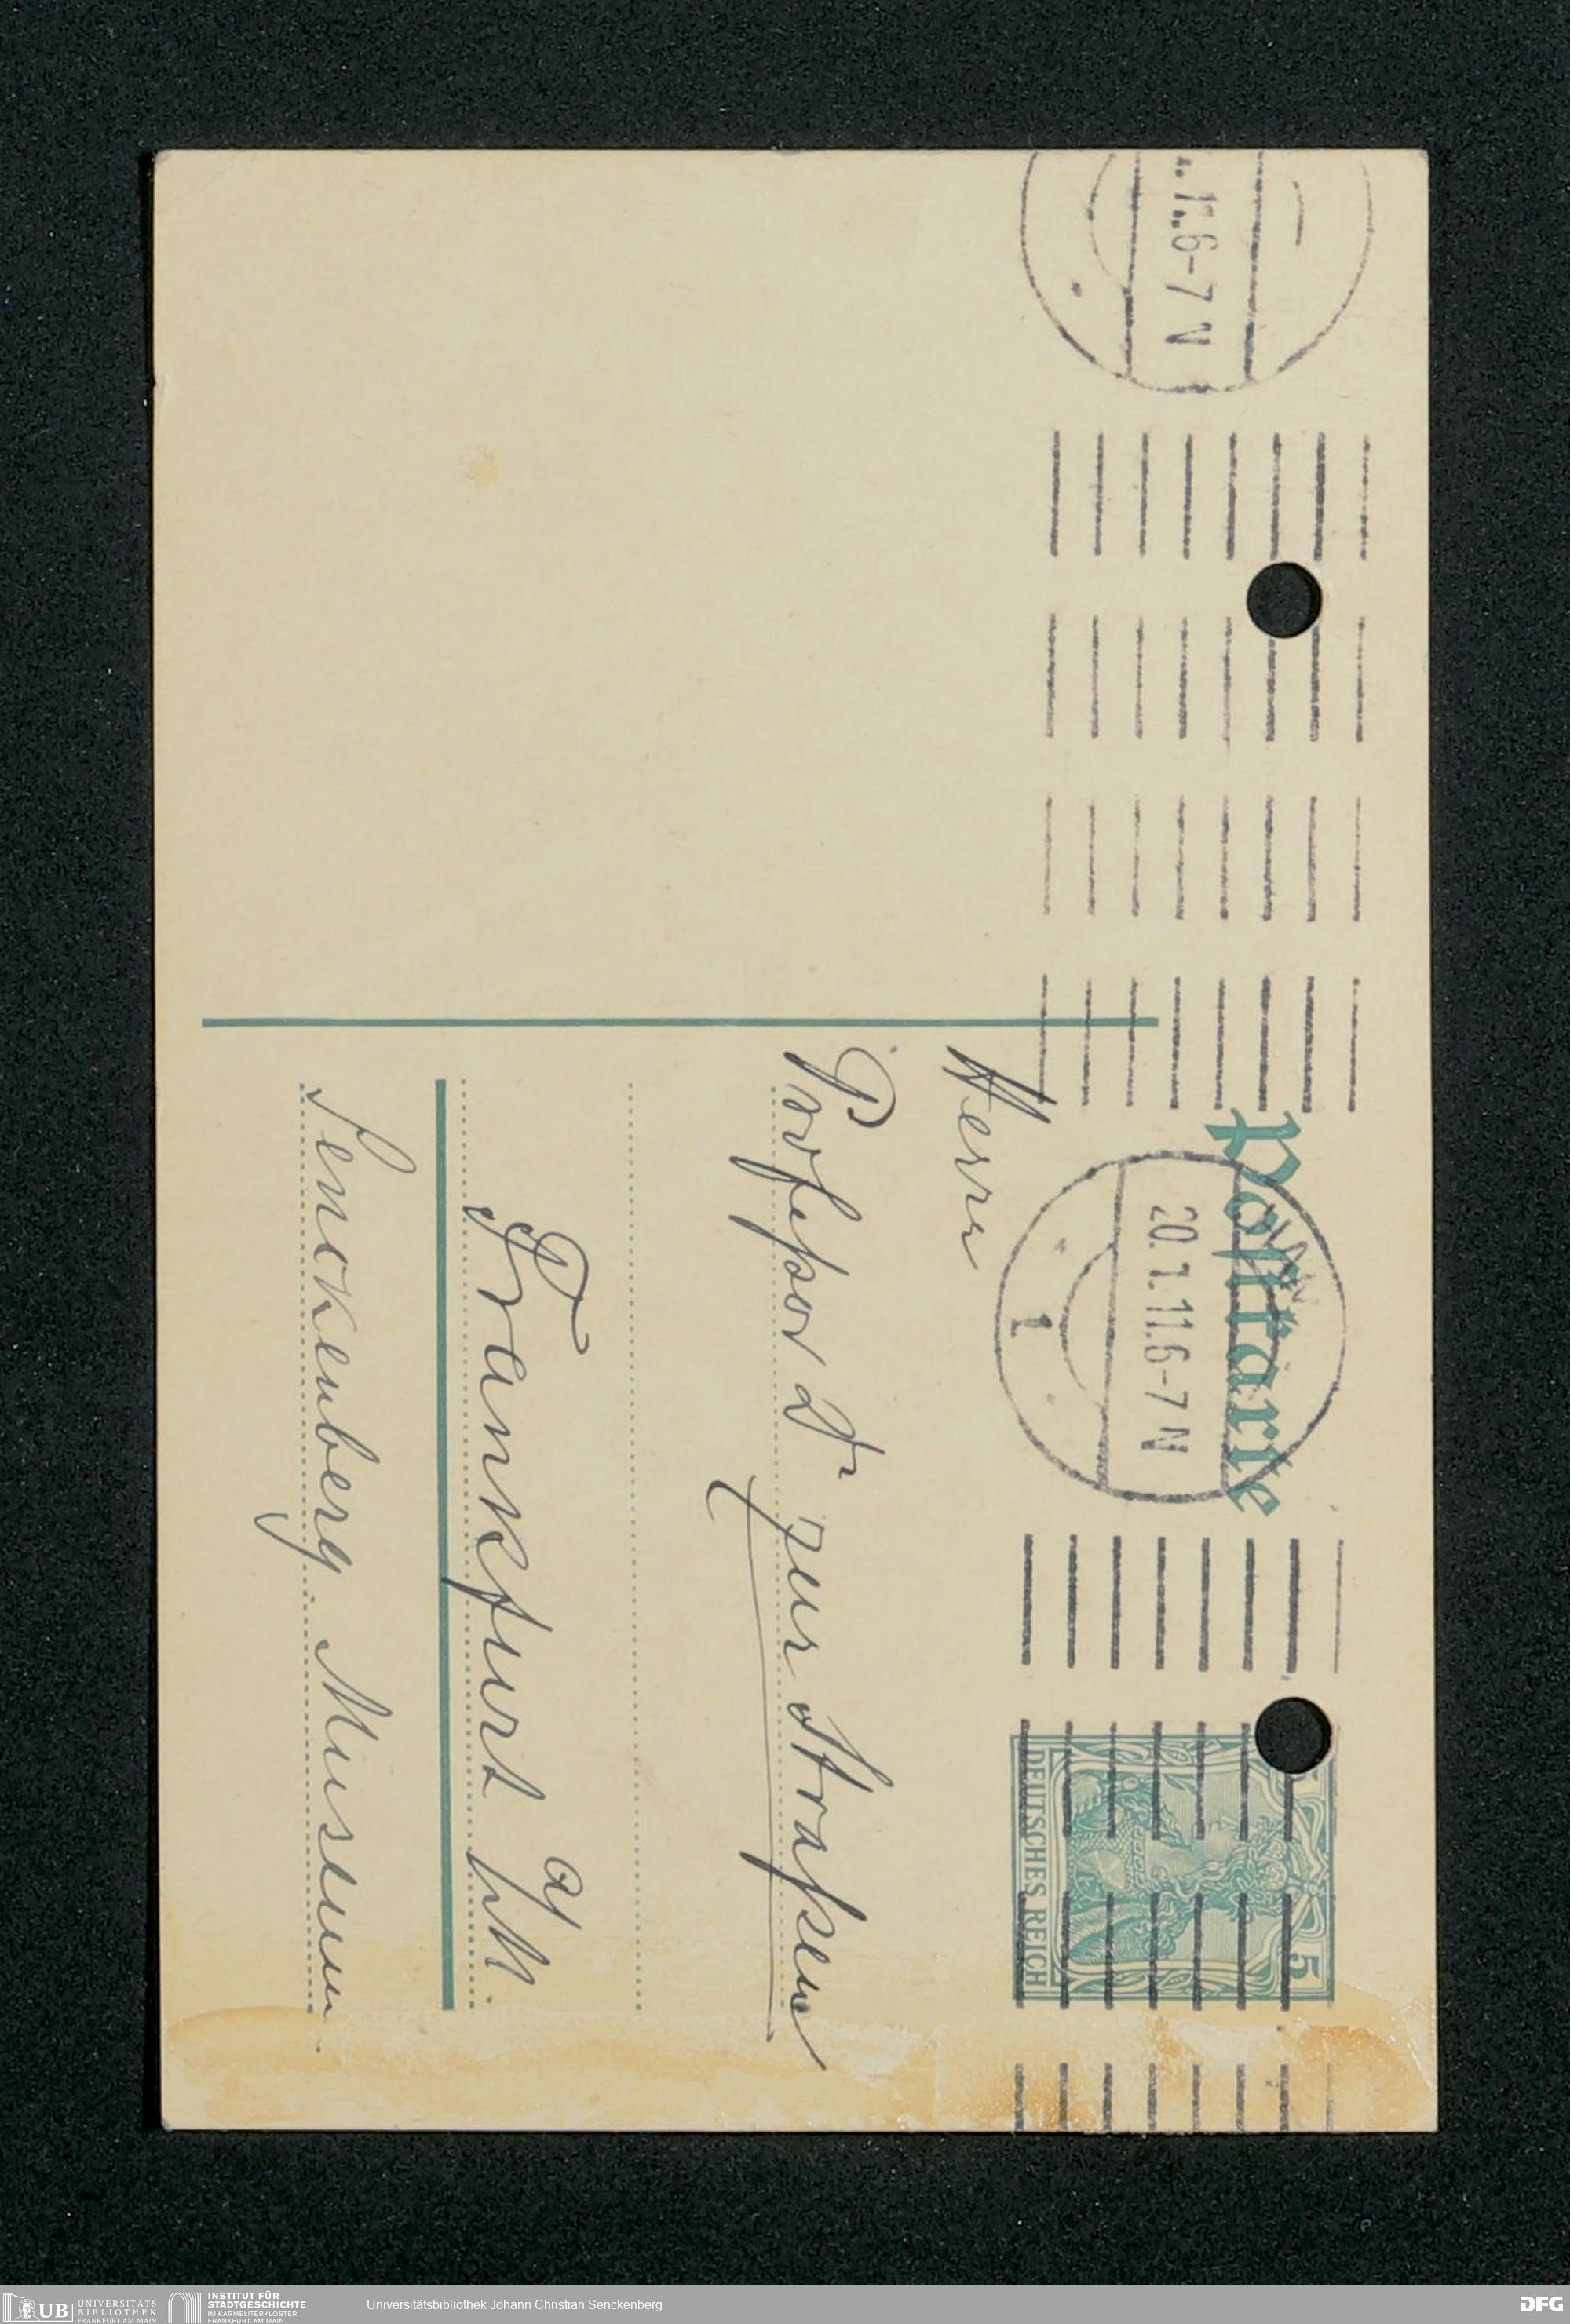 Postkarte
20.1.11.6-7 N
1
6-7 N
5
DEUTSCHES REICH
Herrn
Professor Dr zur Strassen
Frankfurt a/M.
Senckenberg. Museum.
UB UNIVERSITÄTS
BIBLIOTHEK
FRANKFURT AM MAIN
INSTITUT FÜR
STADTGESCHICHTE
IM KARMELITERKLOSTER
FRANKFURT AM MAIN
Universitätsbibliothek Johann Christian Senckenberg
DFG